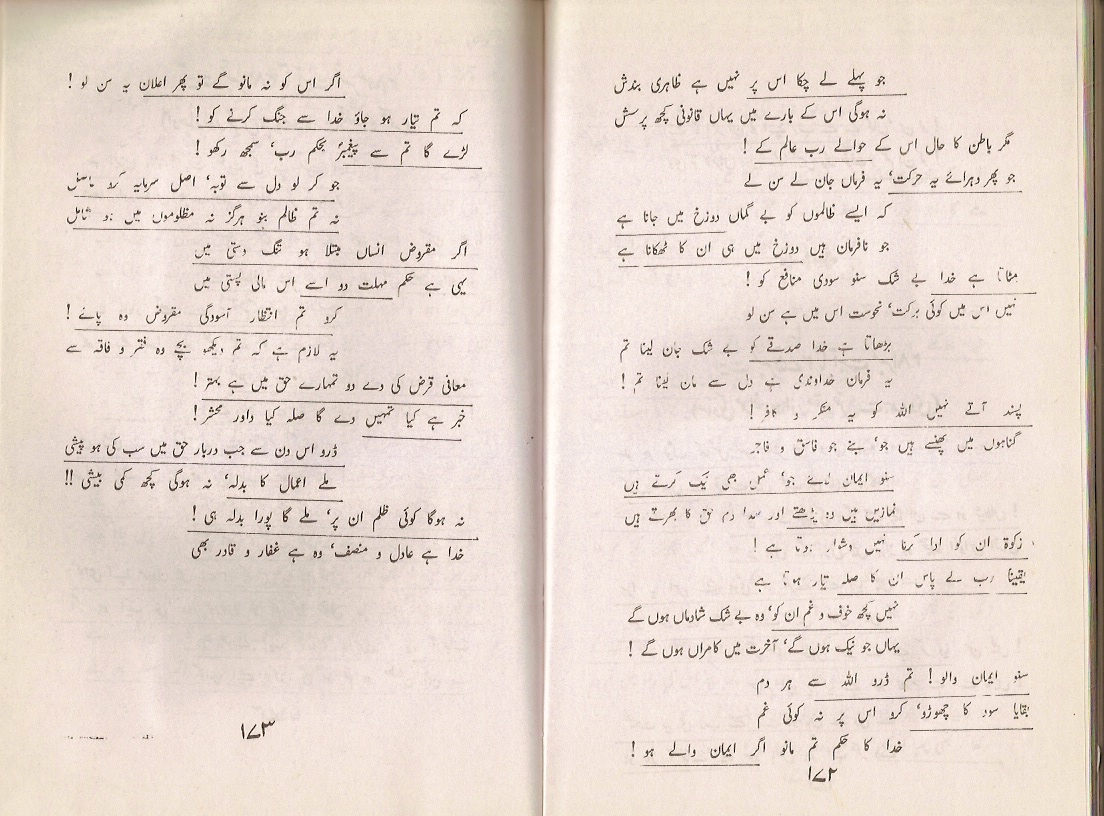 جو پہلے لے چکا اس پر نہیں ہے ظاہری بندش
نہ ہوگی اس کے بارے میں یہاں قانونی کچھ پرسش
مگر باطن کا حال اس کے حوالے رب عالم کے !
جو پھر دہرائے یہ حرکت‘ یہ فرماں جان لے سن لے
کہ ایسے ظالموں کو بے گماں دوزخ میں جانا ہے
جو نافرمان ہیں دوزخ میں ہی ان کا ٹھکانا ہے
مٹاتا ہے خدا بے شک سنو سودی منافع کو !
نہیں اس میں کوئی برکت‘ نحوست اس میں ہے سن لو
بڑھاتا ہے خدا صدقے کو بے شک جان لینا تم
یہ فرمان خداوندی ہے دل سے مان لینا تم !
پسند آتے نہیں اللہ کو یہ منکر و کافر !
گناہوں میں پھنسے ہیں جو‘ بنے جو فاسق و فاجر
سنو ایمان لائے جو‘ عمل بھی نیک کرتے ہیں
نمازیں ہیں وہ پڑھتے اور سدا دم حق کا بھرتے ہیں
زکوٰۃ ان کو ادا کرنا نہیں دشوار ہوتا ہے !
یقیناً رب کے پاس ان کا صلہ تیار ہوتا ہے
نہیں کچھ خوف و غم ان کو‘ وہ بے شک شادماں ہوں گے
یہاں جو نیک ہوں گے‘ آخرت میں کامراں ہوں گے !
سنو ایمان والو ! تم ڈرو اللہ سے ہر دم
بقایا سود کا چھوڑو‘ کرو اس پر نہ کوئی غم
خدا کا حکم تم مانو اگر ایمان والے ہو !
۱۷۲
اگر اس کو نہ مانو گے تو پھر اعلان یہ سن لو !
کہ تم تیار ہو جاؤ خدا سے جنگ کرنے کو !
لڑے گا تم سے پیغمبرؐ بحکم رب‘ سمجھ رکھو !
جو کر لو دل سے توبہ‘ اصل سرمایہ کرو حاصل
نہ تم ظالم بنو ہرگز نہ مظلوموں میں ہو شامل
اگر مقروض انساں مبتلا ہو تنگ دستی میں
یہی ہے حکم مہلت دو اسے اس مالی پستی میں
کرو تم انتظار آسودگی مقروض وہ پائے !
یہ لازم ہے کہ تم دیکھو بچے وہ فقر و فاقہ سے
معافی قرض کی دے دو تمہارے حق میں ہے بہتر !
خبر ہے کیا تمہیں دے گا صلہ کیا داور محشر !
ڈرو اس دن سے جب دربار حق میں سب کی ہو پیشی
ملے اعمال کا بدلہ‘ نہ ہوگی کچھ کمی بیشی !!
نہ ہوگا کوئی ظلم ان پر‘ ملے گا پورا بدلہ ہی !
خدا ہے عادل و منصف‘ وہ ہے غفار و قادر بھی
۱۷۳